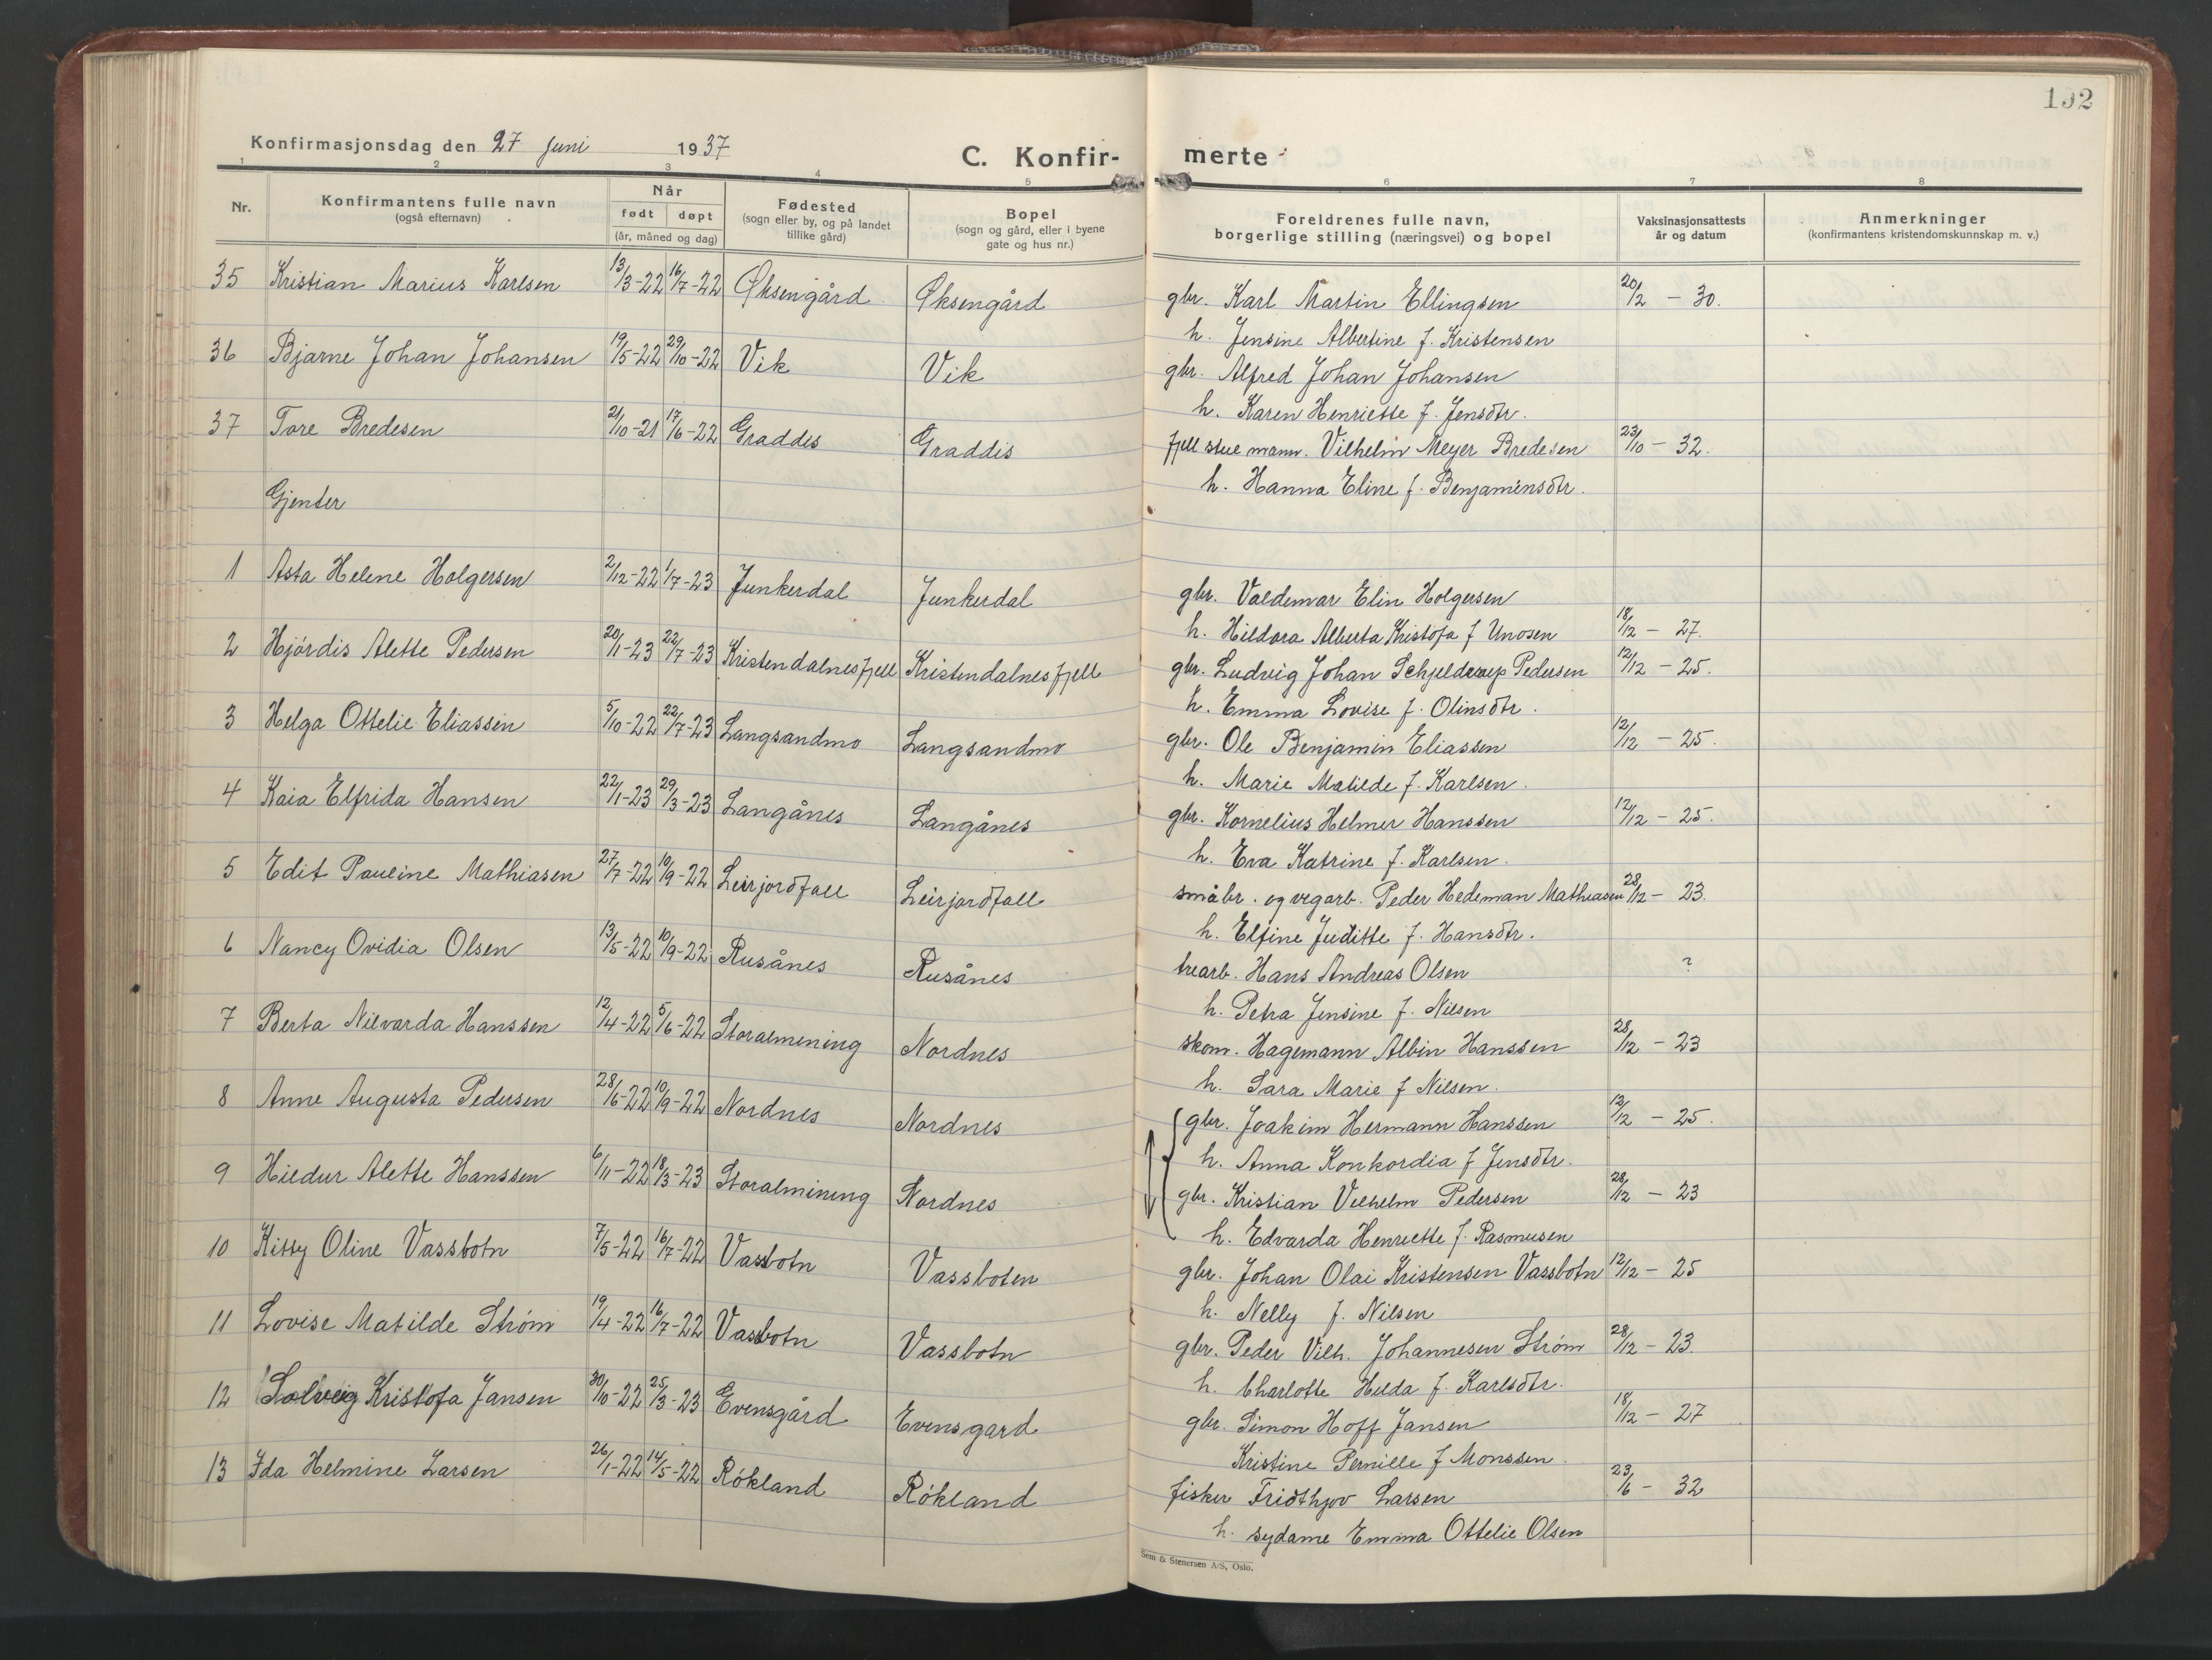 192
Konfirmasjonsdag den 27 juni 1937
C. Konfir- merte
1 2 3 4 5 6 7 8
Nr.
Konfirmantens fulle navn
(også efternavn)
Når
født døpt
(år, måned og dag)
Fødested
(sogn eller by, og på landet
tillike gård)
Bopel
(sogn og gård, eller i byene
gate og hus nr.)
Foreldrenes fulle navn,
borgerlige stilling (næringsvei) og bopel
Vaksinasjonsattests
år og datum
Anmerkninger
(konfirmantens kristendomskunnskap m. v.)
35 Kristian Marius Karlsen 13/3-22 16/7-22 Øksengård Øksengård gbr. Karl Martin Ellingsen 20/2 - 30.
h. Jensine Albertine f. Kristensen
36 Bjarne Johan Johansen 19/5-22 29/10-22 Vik Vik gbr. Alfred Johan Johansen
h. Karen Henriette f. Jensdtr.
37 Tore Bredesen 21/10-21 17/6-22 Graddis Graddis fjellstuemann. Vilhelm Meyer Bredesen 23/10 - 32.
h. Hanna Eline f. Benjaminsdtr.
Gjenter
1 Asta Helene Holgersen 2/12-22 1/7-23 Junkerdal Junkerdal gbr. Valdemar Elin Holgersen
h. Hildora Alberta Kristofa f Unosen 18/12 - 27.
2 Hjördis Alette Pedersen 20/1-23 22/7-23 Kristendalnesfjell Kristendalnesfjell gbr. Ludvig Johan Schjelderup Pedersen 12/12 - 25.
h. Emma Lovise f. Olinsdtr.
3 Helga Ottelie Eliassen 5/10-22 22/7-23 Langsandmo Langsandmo gbr. Ole Benjamin Eliassen 12/12 - 25.
h. Marie Matilde f. Karlsen.
4 Kaia Elfrida Hansen 22/1-23 29/3-23 Langånes Langånes gbr. Kornelius Helmer Hanssen 12/12 - 25.
h. Eva Katrine f. Karlsen.
5 Edit Pauline Mathiasen 27/7-22 10/9-22 Leirjordfall Leirjordfall småbr. og vegarb. Peder Hedeman Mathiasen 28/12 - 23.
h. Elfine Juditte f. Hansdtr.
6 Nancy Ovidia Olsen 13/5-22 10/9-22 Rusånes Rusånes trearb. Hans Andreas Olsen ?
h. Petra Jensine f. Nilsen
7 Berta Nilvarda Hanssen 12/4-22 5/6-22 Storalmening Nordnes skom. Hagemann Albin Hanssen 28/12 - 23
h. Sara Marie f Nilsen.
8 Anne Augusta Pedersen 28/6-22 10/9-22 Nordnes Nordnes gbr. Joakim Hermann Hanssen 12/12 - 25.
h. Anna Konkordia f Jensdtr.
9 Hildur Alette Hanssen 6/11-22 18/3-23 Storalmining Nordnes gbr. Kristian Vilhelm Pedersen 28/12 - 23
h. Edvarda Henriette f. Rasmusen
10 Kitty Oline Vassbotn 7/5-22 16/7-22 Vassbotn Vassboten gbr. Johan Olai Kristensen Vassbotn 12/12 - 25
h. Nelly f. Nilsen
11 Lovise Matilde Ström 19/4-22 16/7-22 Vassbotn Vassbotn gbr. Peder Vilh. Johannesen Ström 28/12 - 23
h. Charlotte Hilda f. Karlsdtr.
12 Solveig Kristofa Jansen 30/10-22 25/3-23 Evensgård Evensgard gbr. Simon Hoff Jansen 18/12 - 27
Kristine Pernille f Monssen.
13 Ida Helmine Larsen 26/1-22 14/5-22 Rökland Rökland fisker Fridthjov Larsen 23/6 - 32
h. sydame Emma Ottelie Olsen
Sem & Stenersen A/S, Oslo.